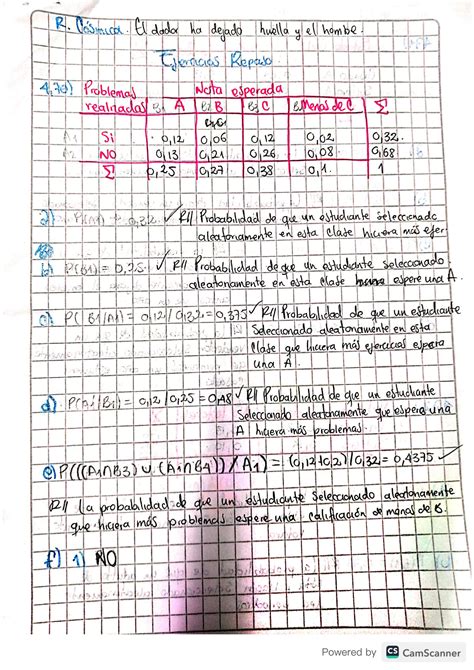 R. Cósmica. El dador ha dejado huella y el hombe.
Ejercicios Repaso
4,70) Problemas Nota esperada
realizados B1 A B2 B B3 C B4 Menos de C Σ
A1 Si 0,12 0,06 0,12 0,02 0,32
A2 NO 0,13 0,21 0,26 0,08 0,68
Σ 0,25 0,27 0,38 0,1 1
a) P(A1) = 0,32 ✓ R// Probabilidad de que un estudiante seleccionado
aleatoriamente en esta clase hiciera más ejer
b) P(B1) = 0,25 ✓ R// Probabilidad de que un estudiante seleccionado
aleatoriamente en esta clase espere una A.
c) P(B1/A1) = 0,12/0,32 = 0,375 ✓ R// Probabilidad de que un estudiante
Seleccionado aleatoriamente en esta
Clase que hiciera más ejercicios espera
una A.
d) P(A1/B1) = 0,12/0,25 = 0,48 ✓ R// Probabilidad de que un estudiante
Seleccionado aleatoriamente que espere una
A hiciera más problemas.
e) P(((A1∩B3) ∪ (A1∩B4))/A1) = (0,12+0,2)/0,32 = 0,4375 ✓
R// La probabilidad de que un estudiante seleccionado aleatoriamente
que hiciera más problemas espere una calificación de menos de B.
f) 1) NO
Powered by CS CamScanner